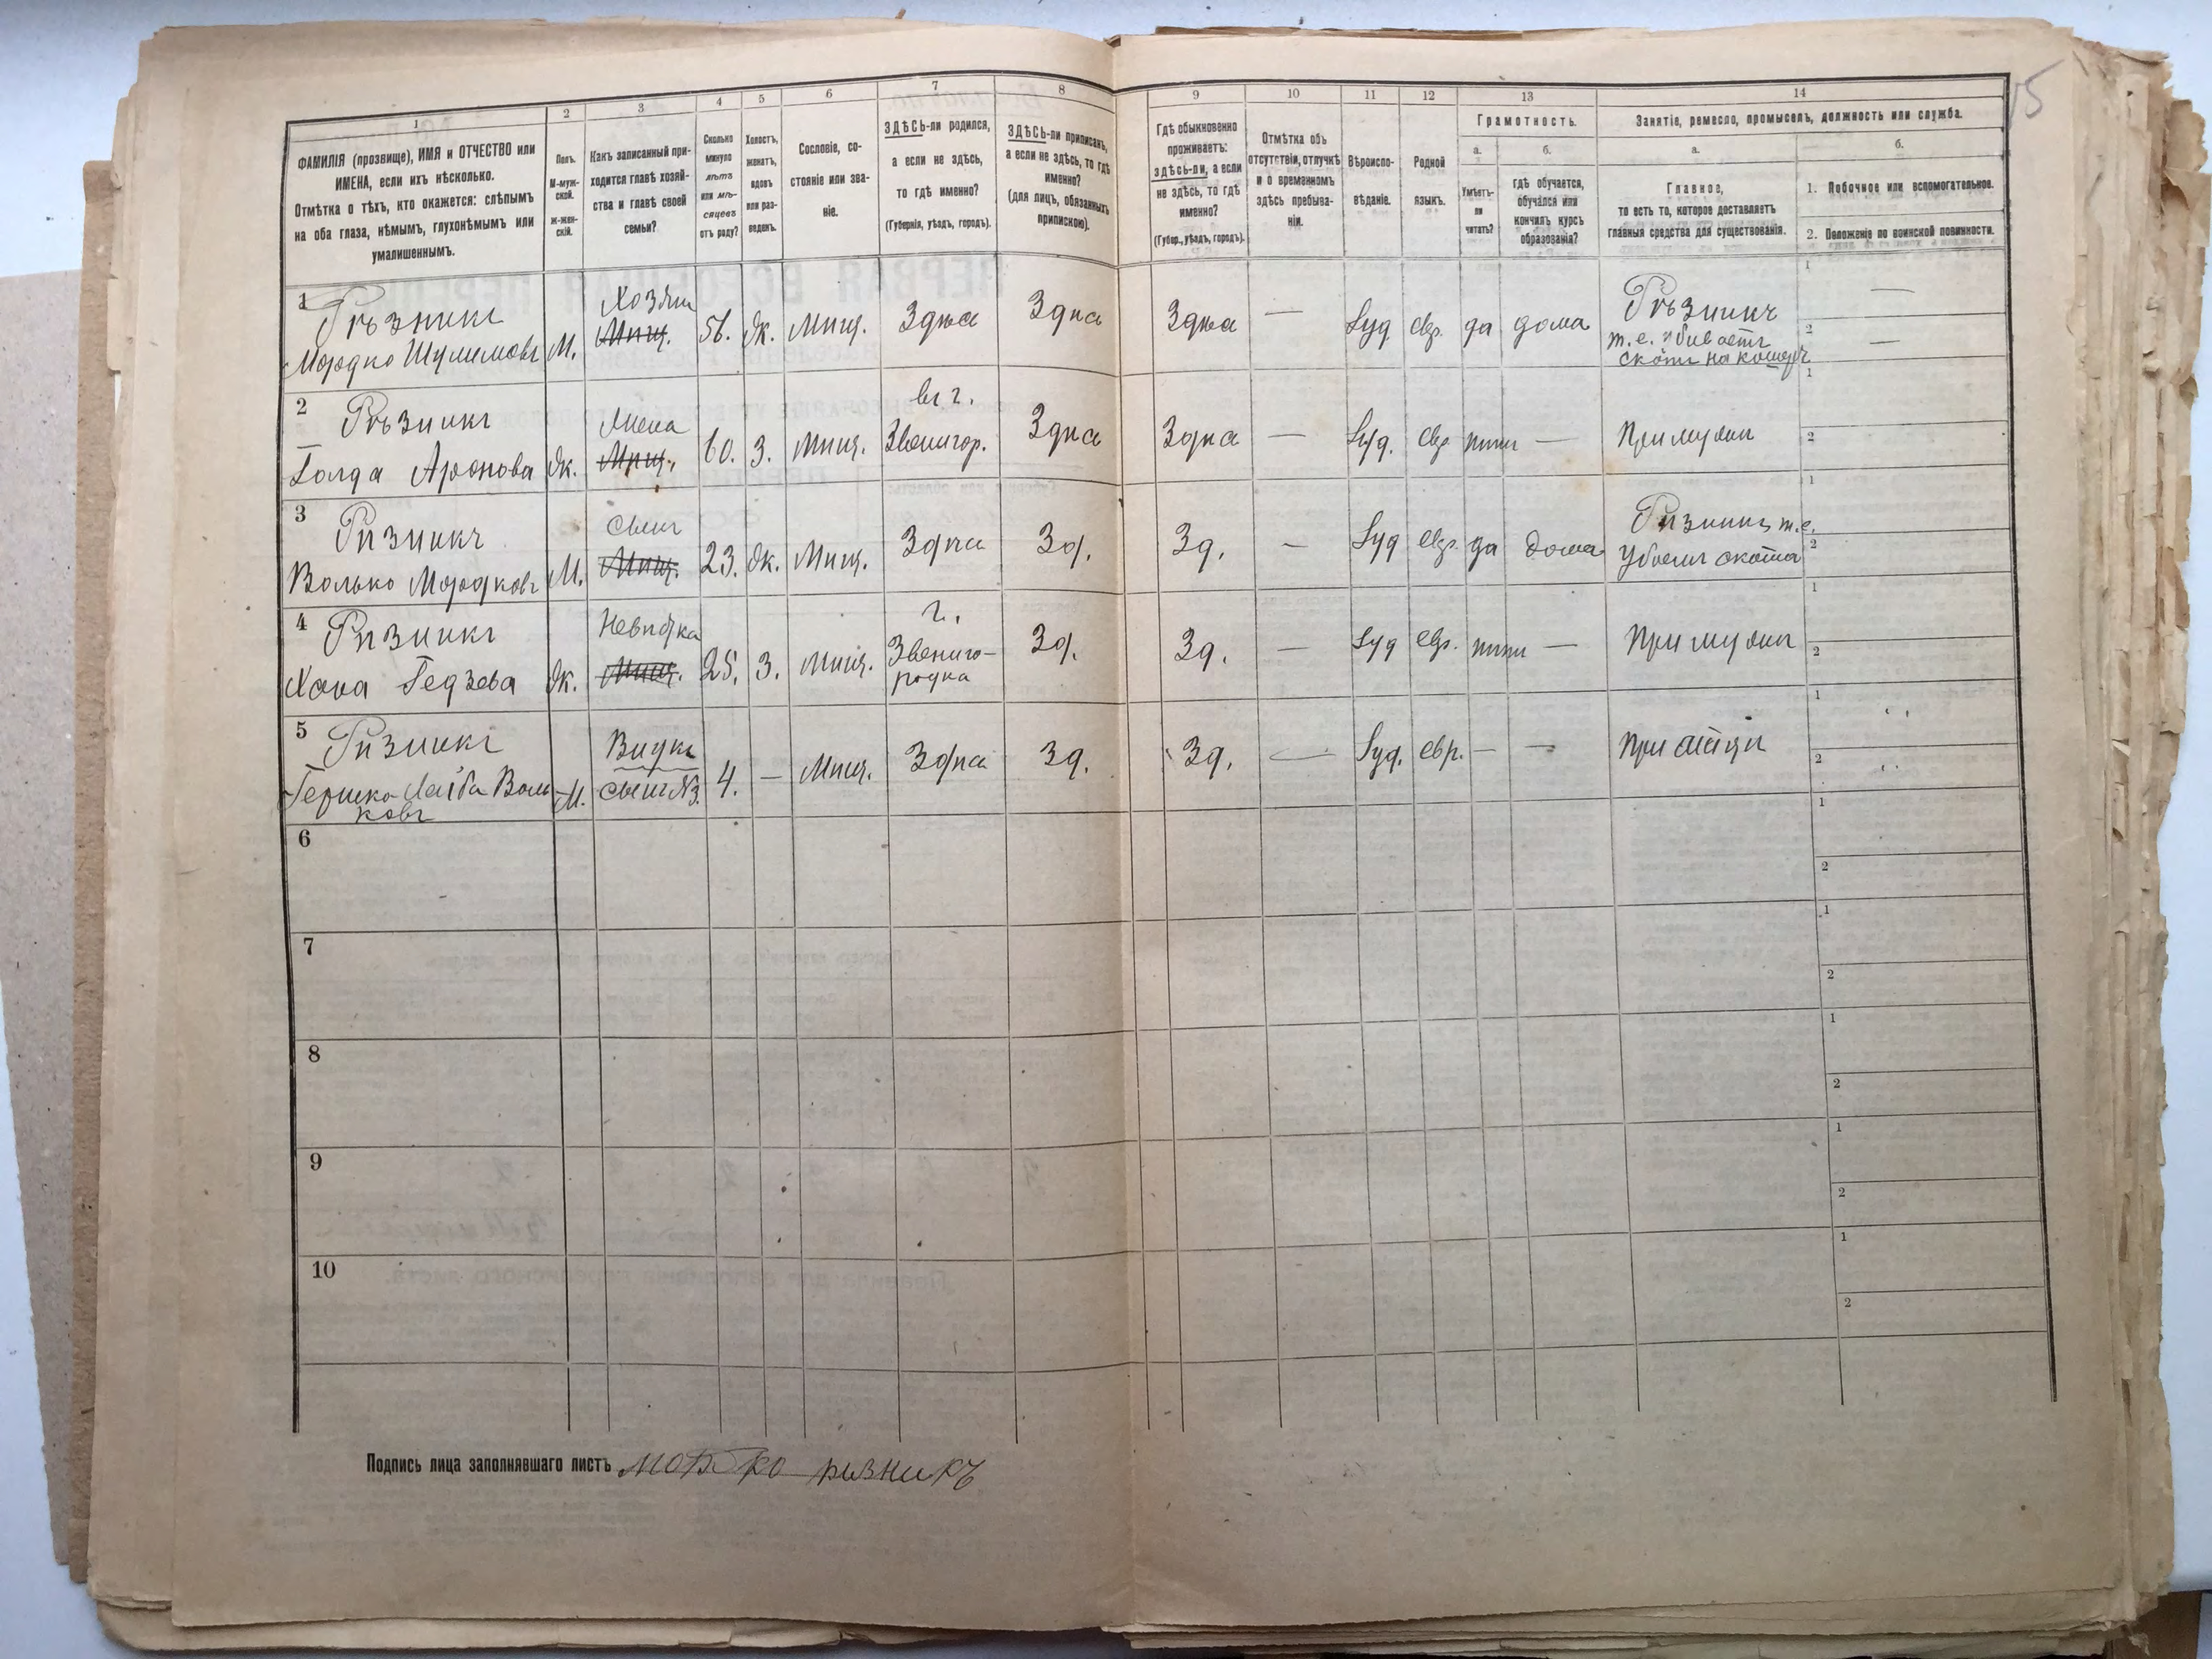 15
1 2 3 4 5 6 7 8 9 10 11 12 13 14
ФАМИЛІЯ (прозвище), ИМЯ и ОТЧЕСТВО или
ИМЕНА, если ихъ нѣсколько.
Отмѣтка о тѣхъ, кто окажется: слѣпымъ
на оба глаза, нѣмымъ, глухонѣмымъ или
умалишеннымъ.
Полъ.
М-муж-
ской.
ж-жен-
скій.
Какъ записанный при-
ходится главѣ хозяй-
ства и главѣ своей
семьи?
Сколько
минуло
лѣтъ
или мѣ-
сяцевъ
отъ роду?
Холостъ,
женатъ,
вдовъ
или раз-
веденъ.
Сословіе, со-
стояніе или зва-
ніе.
ЗДѢСЬ-ли родился,
а если не здѣсь,
то гдѣ именно?
(Губернія, уѣздъ, городъ).
ЗДѢСЬ-ли приписанъ,
а если не здѣсь, то гдѣ
именно?
(для лицъ, обязанныхъ
припискою).
Гдѣ обыкновенно
проживаетъ:
здѣсь-ли, а если
не здѣсь, то гдѣ
именно?
(Губер., уѣздъ, городъ).
Отмѣтка объ
отсутствіи, отлучкѣ
и о временномъ
здѣсь пребыва-
ніи.
Вѣроиспо-
вѣданіе.
Родной
языкъ.
Грамотность.
а.
Умѣетъ-
ли
читать?
б.
гдѣ обучается,
обучался или
кончилъ курсъ
образованія?
Занятіе, ремесло, промыселъ, должность или служба.
а.
Главное,
то есть то, которое доставляетъ
главныя средства для существованія.
б.
1. Побочное или вспомогательное.
2. Положеніе по воинской повинности.
1 Рѣзникъ
Мордко Шулимовъ
М.
Хозяин
Мищ.
56.
Ж.
Мищ.
Здѣсь
Здѣсь
Здѣсь
—
Іуд.
евр.
да
дома
Рѣзникъ
т.е. убиваетъ
скотъ на кошеръ
1 —
2 —
2 Рѣзникъ
Голда Аронова
Ж.
Жена
Мищ.
60.
З.
Мищ.
въ г.
Звенигор.
Здѣсь
Здѣсь
—
Іуд.
евр.
нѣтъ
—
При мужѣ
1
2
3 Рѣзникъ
Волько Мордковъ
М.
Сынъ
Мищ.
23.
Ж.
Мищ.
Здѣсь
Зд.
Зд.
—
Іуд
евр.
да
дома
Рѣзникъ, т.е.
убоемъ скота
1
2
4 Рѣзникъ
Хана Гедзева
Ж.
Невѣстка
Мищ.
25.
З.
Мищ.
г.
Звениго-
родка
Зд.
Зд.
—
Іуд
евр.
нѣтъ
—
При мужѣ
1
2
5 Рѣзникъ
Гершко Лейба Воль
ковъ
М.
Внукъ
сынъ №3.
4.
—
Мищ.
Здѣсь
Зд.
Зд.
—
Іуд.
евр.
—
—
При отцѣ
1
2
6
1
2
7
1
2
8
1
2
9
1
2
10
1
2
Подпись лица заполнявшаго листъ Мордко ризникъ